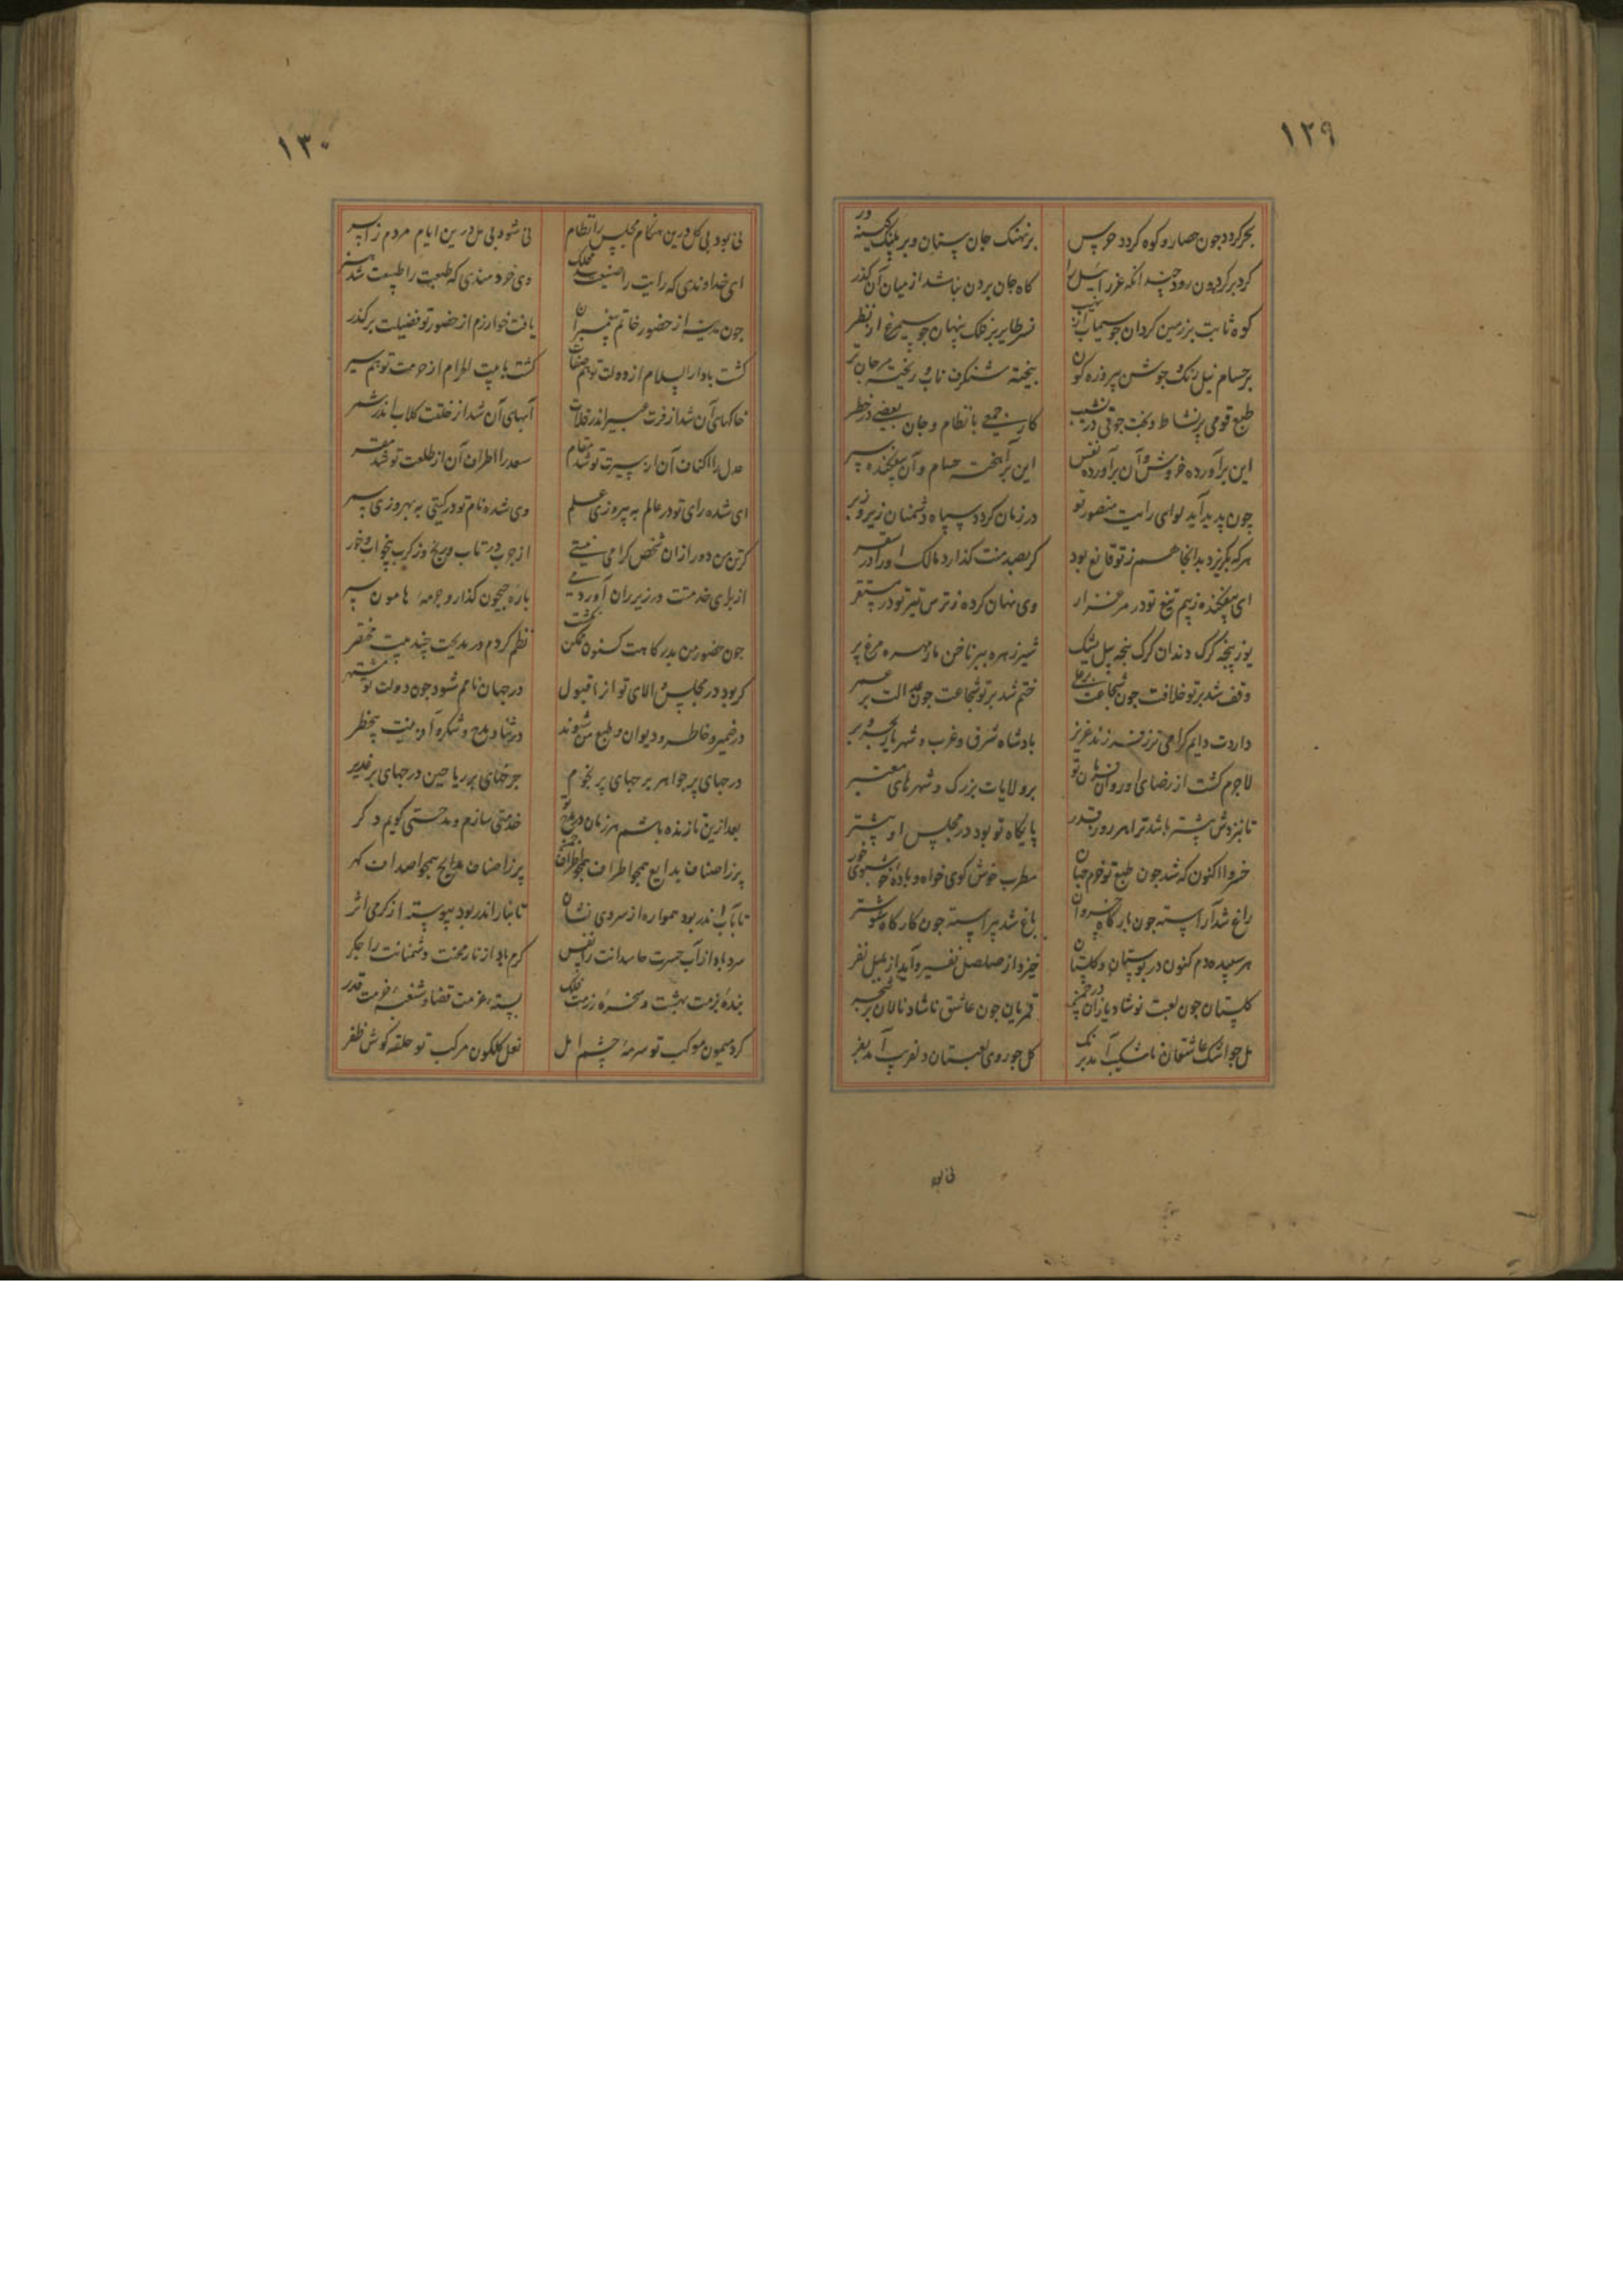 ۱۲۹
بحر کردد جون حصار و کوه کردد جوپس بر نهنک جان ستان و بر پلنک کینه ور
کرد بر کردون رود چندانکه عزرائیل را کاه جان بردن نباشد از میان آن کذر
کوه ثابت بر زمین کردان جو سیماب از نهیب نسر طایر بر فلک پنهان جو سیمرغ از نظر
بر حسام نیل رنک و جوشن پیروزه کون بیخته شنکرف ناب و ریخته مرجان تر
طبع قومی پر نشاط و بخت جوقی در نشیب کار جمعی با نظام و جان بعضی در خطر
این برآورده خروش و آن برآورده نفس این برآهخته حسام و آن بیفکنده سپر
جون پدید آید لوای رایت منصور تو در زمان کردد سپاه دشمنان زیر و زبر
هرکه بکریزد بدانجا هم ز تو قانع بود کر بصد منت کذارد مالک اورا در سقر
ای بیفکنده ز بیم تیغ تو در مرغزار وی نهان کرده ز ترس تیر تو در مستقر
یوز پنجه کرک دندان کرک پنجه پیل یشک شیر زهره ببر ناخن مار مهره مرغ پر
وقف شد بر تو خلافت جون شجاعت بر علی ختم شد بر تو شجاعت جون عدالت بر عمر
داردت دایم کرامی تر ز فرزند عزیز بادشاه شرق و غرب و شهریار بحر و بر
لاجرم کشت از رضای او روان فرمان تو بر ولایات بزرک و شهرهای معتبر
تا بنزدش بیشتر باشد ترا هر روز قدر پایکاه تو بود در مجلس او بیشتر
خسروا اکنون که شد جون طبع تو خرم جهان مطرب خوش کوی خواه و باده خوشبوی خور
راغ شد آراسته جون بارکاه خسروان باغ شد پیراسته جون کارکاه شوشتر
هر سپیده دم کنون در بوستان و کلستان خیزد از صلصل نفیر و آید از بلبل نفر
کلستان جون لعبت نوشاد یازان در چمن قمریان جون عاشق ناشاد نالان بر شجر
مل جو اشک عاشقان ناشکیب آمد برنک کل جو روی لعبتان دلفریب آمد بفر
نی بود
۱۳۰
نی بود بی کل درین هنکام مجلس را نظام نی شود بی مل درین ایام مردم را بسر
ای خداوندی که رایت را صنیعت شد فلک وی خردمندی که طبعت را طبیعت شد هنر
جون مدینه از حضور خاتم پیغمبران یافت خوارزم از حضور تو فضیلت بر کذر
کشت با دار السلام از دولت تو هم صفات کشت با بیت الحرام از حرمت تو هم سیر
خاکهای آن شد از فرت عبیر اندر فلات آبهای آن شد از خلقت کلاب اندر شمر
عدل را اکناف آن از سیرت تو شد مقام سعد را اطراف آن از طلعت تو شد مقر
ای شده رای تو در عالم به پیروزی علم وی شده نام تو در کیتی به بهروزی سمر
کر تن من دور از آن شخص کرامی نیستی از جه در تاب و رنج و ز کرب بیخواب و خور
از برای خدمتت در زیر ران آوردمی باره جیحون کذار و جرمه هامون سپر
جون حضور من بدرکاهت کنون ممکن نکشت نظم کردم در مدیحت چند بیت مختصر
کر بود در مجلس والای تو از ما قبول در جهان نامم شود جون دولت تو مشتهر
در ضمیر و خاطر و دیوان و طبع من شوند در ثنا و مدح و شکر و آفرینت بیخطر
درجهای پر جواهر برجهای پر نجوم جرخهای پر ریاحین درجهای پر غدیر
بعد ازین تا زنده باشم هر زمان در مدح تو خدمتی سازم و مدحتی کویم دکر
پر ز اصناف بدایع همجو اطراف چمن پر ز اصناف مدایح همجو اصداف کهر
تا بآب اندر بود همواره از سردی نشان تا بنار اندر بود پیوسته از کرمی اثر
سرد باد از آب حسرت حاسدانت را نفس کرم باد از نار محنت دشمنانت را جکر
بنده بزمت بهشت و سخره رزمت فلک بسته عزمت قضا و شغبه حزمت قدر
کرد میمون موکب تو سرمه چشم امل نعل کلکون مرکب تو حلقه کوش ظفر